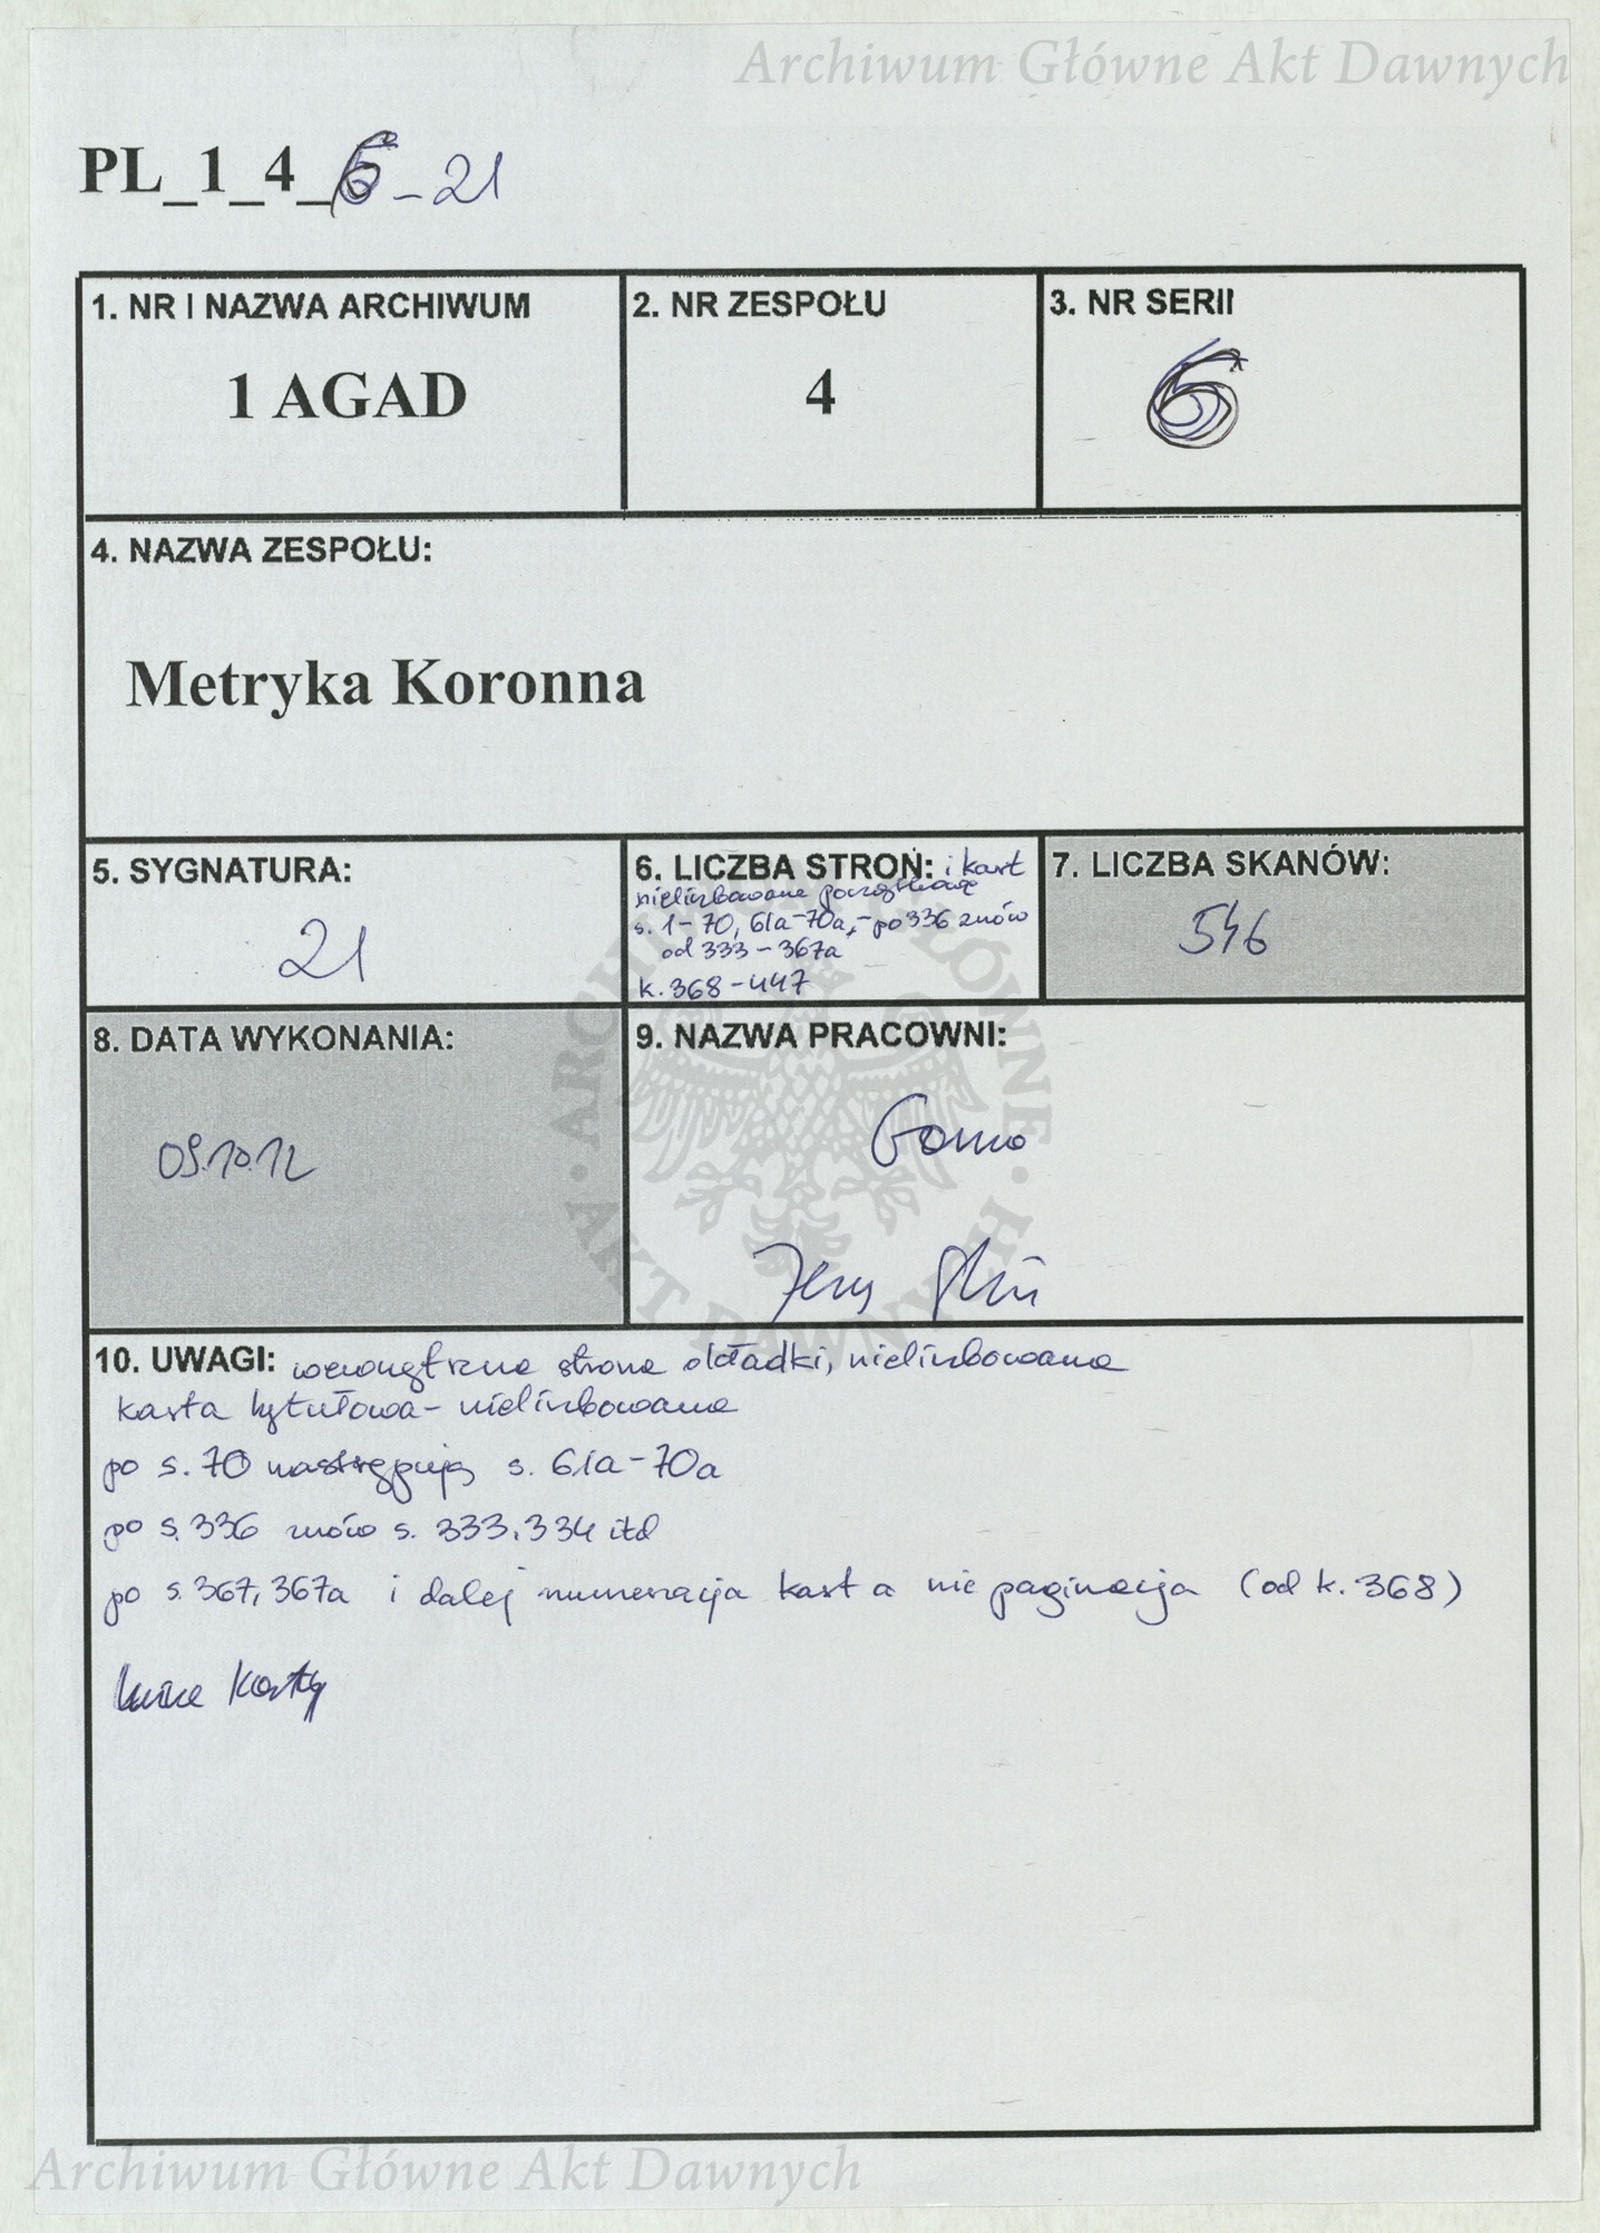 Archiwum Główne Akt Dawnych
PL_1_4_6-21
1. NR I NAZWA ARCHIWUM
1 AGAD
2. NR ZESPOŁU
4
3. NR SERII
6
4. NAZWA ZESPOŁU:
Metryka Koronna
5. SYGNATURA:
21
6. LICZBA STRON: i kart
nieliczbowane początkowe
s. 1-70, 61a-70a, - po 336 znów
od 333-367a
k. 368-447
7. LICZBA SKANÓW:
546
8. DATA WYKONANIA:
09.10.12
9. NAZWA PRACOWNI:
Jerzy
10. UWAGI: wewnętrzna strona okładki, nieliczbowana
karta tytułowa - nieliczbowana
po s. 70 następują s. 61a-70a
po s. 336 znów s. 333, 334 itd
po s. 367, 367a i dalej numeracja kart a nie paginacja (od k. 368)
karty
ARCHIWUM GŁÓWNE · AKT DAWNYCH ·
Archiwum Główne Akt Dawnych